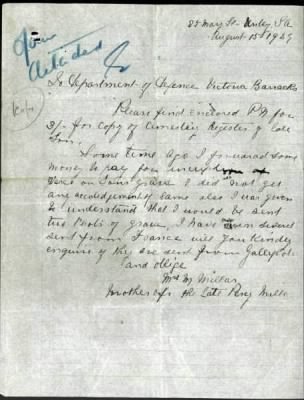 85 May St Unley, SA
August 15th 1929
To Department of Defence Victoria Barracks
Please find enclosed P.N for
3/- for Copy of Cemetery Register of late
Son.
Some time ago I forward some
money to pay for
on Sons grave I did not get
any acknoledgement of same also I was given
to understand that I would be sent
this Photo of grave, I have seen several
sent from France will you kindly
enquire if they are sent from Gallipoli
and oblige
Mrs M Millar
mother of the late Perg Millar